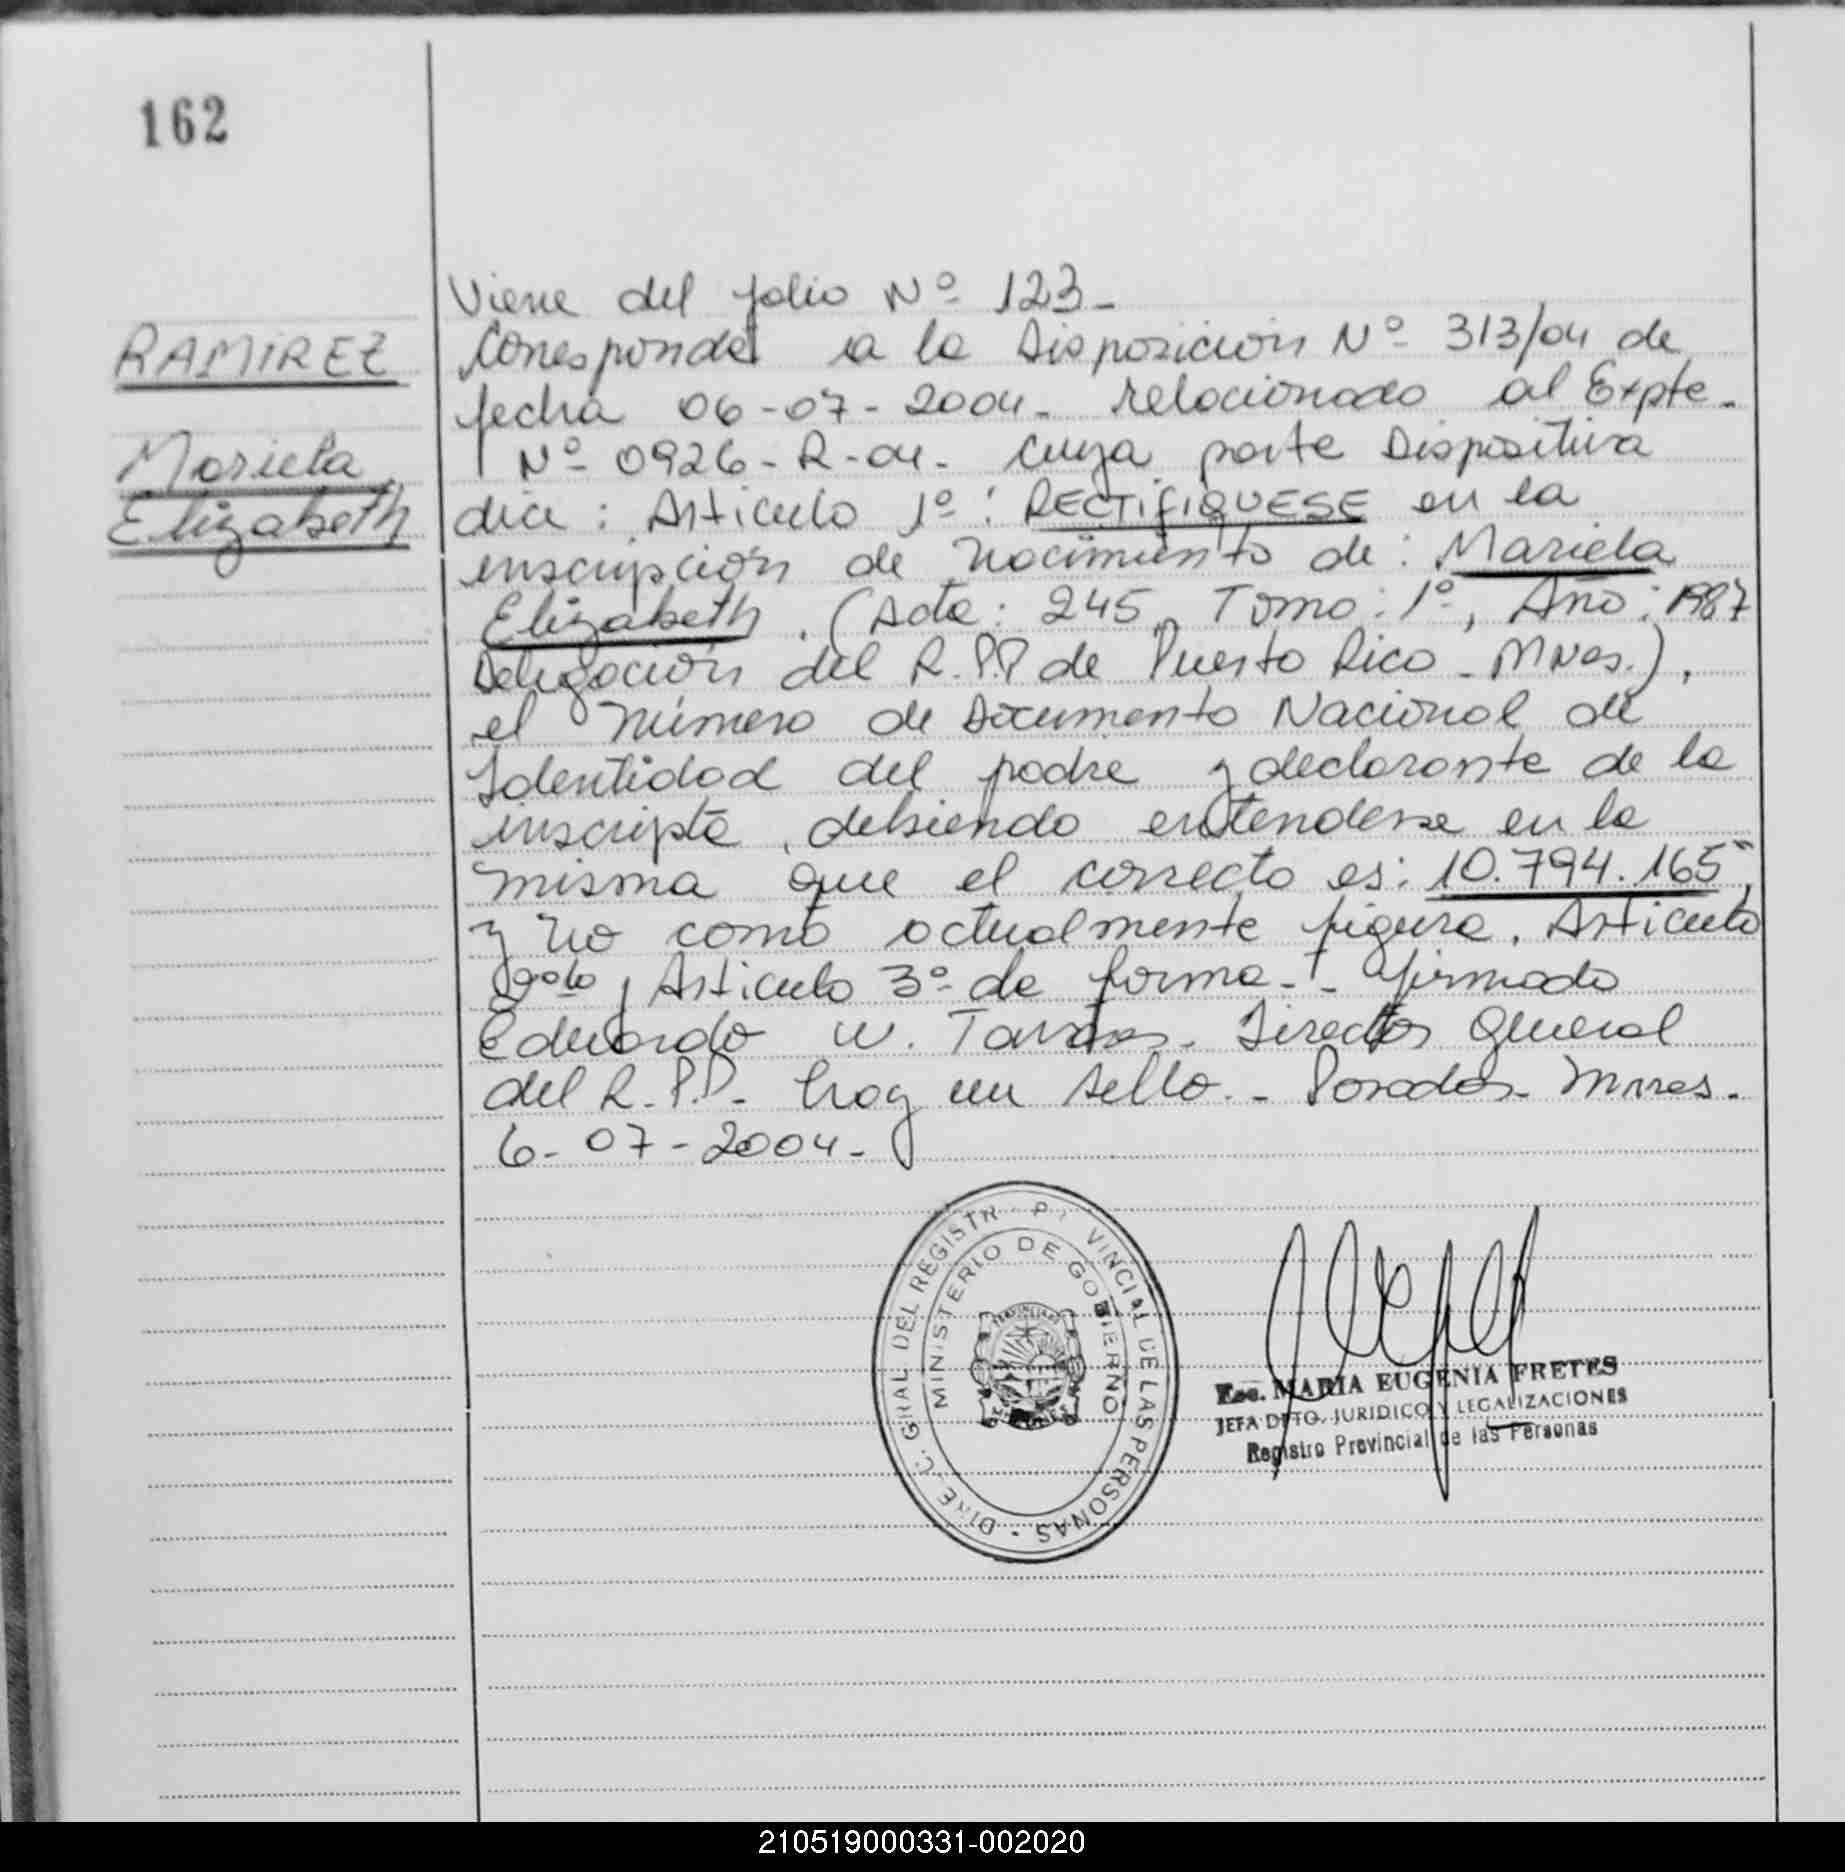 162
RAMIREZ
Mariela
Elizabeth
Viene del folio Nº 123-
Corresponde a la Disposición Nº 313/04 de
fecha 06-07-2004- relacionado al Expte-
Nº 0926-R-04- cuya parte Dispositiva
dice: Articulo 1º: RECTIFIQUESE en la
inscripción de Nacimiento de: Mariela
Elizabeth. (Acta: 245, Tomo: 1º, Año: 1987
Delegación del R.P.P de Puerto Rico - Mnes.),
el número de Documento Nacional de
Identidad del padre y declarante de la
inscripta, debiendo entenderse en la
misma que el correcto es: 10.794.165",
y no como actualmente figura. Articulo
Articulo 3º de forma-- firmado
Eduardo W. Director General
del R.P.P- hay un sello.- Posadas- Mnes-
6-07-2004-
DIREC. GRAL. DEL REGISTR PR VINCIAL DE LAS PERSONAS -
MINISTERIO DE GOBIERNO
Esc. MARIA EUGENIA FRETES
JEFA DPTO. JURIDICO Y LEGALIZACIONES
Registro Provincial de las Personas
210519000331-002020